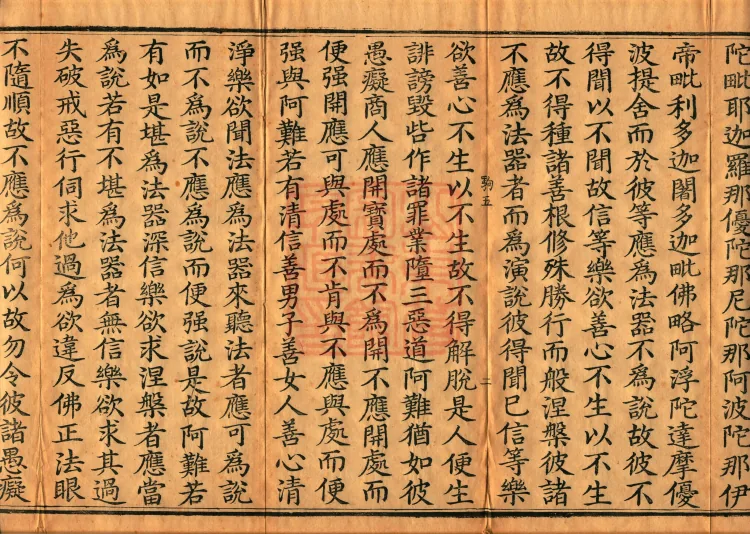 陀毗耶迦羅那優陀那尼陀那阿波陀那伊
帝毗利多迦闍多迦毗佛略阿浮陀達摩優
波提舍而於彼等應為法器不為說故彼不
得聞以不聞故信等樂欲善心不生以不生
故不得種諸善根修殊勝行而般涅槃彼諸
不應為法器者而為演說彼得聞已信等樂
駒五
二
欲善心不生以不生故不得解脫是人便生
誹謗毀呰作諸罪業墮三惡道阿難猶如彼
愚癡商人應開寶處而不為開不應開處而
便强開應可與處而不肯與不應與處而便
强與阿難若有清信善男子善女人善心清
淨樂欲聞法應為法器來聽法者應可為說
而不為說不應為說而便强說是故阿難若
有如是堪為法器深信樂欲求涅槃者應當
為說若有不堪為法器者無信樂欲求其過
失破戒惡行伺求他過為欲違反佛正法眼
不隨順故不應為說何以故勿令彼諸愚癡